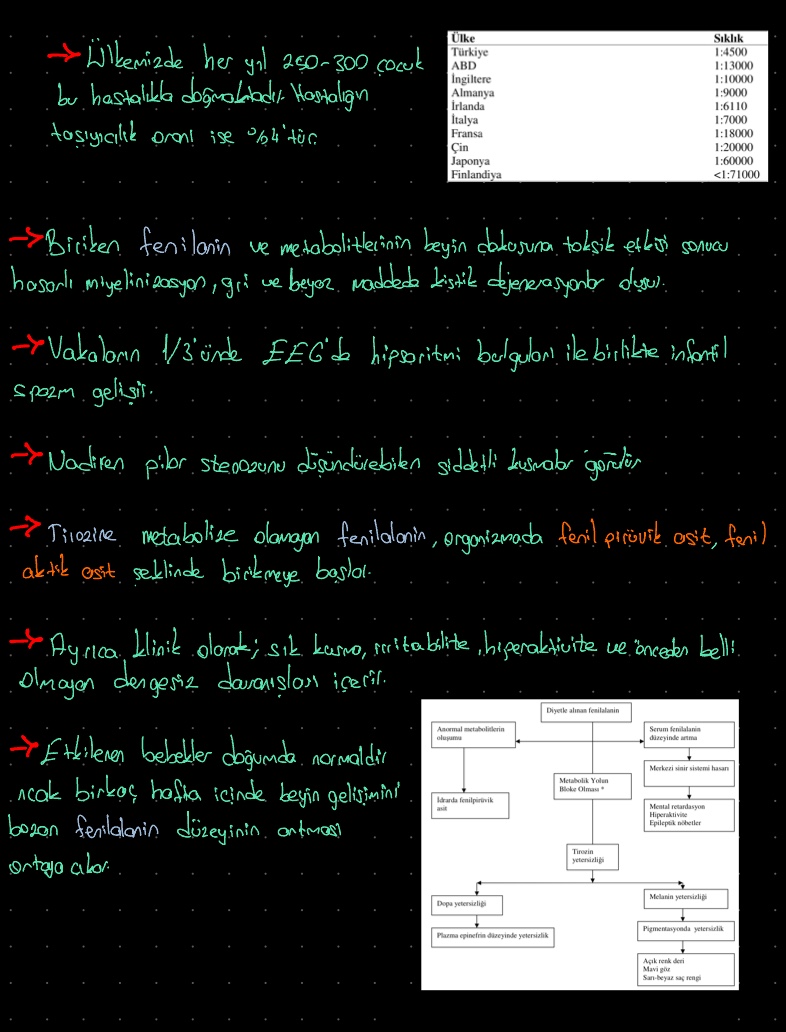 → Ülkemizde her yıl 250-300 çocuk
bu hastalıkla doğmaktadır. Hastalığın
taşıyıcılık oranı ise %4'tür.
Ülke Sıklık
Türkiye 1:4500
ABD 1:13000
İngiltere 1:10000
Almanya 1:9000
İrlanda 1:6110
İtalya 1:7000
Fransa 1:18000
Çin 1:20000
Japonya 1:60000
Finlandiya <1:71000
→ Biriken fenilanin ve metabolitlerinin beyin dokusuna toksik etkisi sonucu
hasarlı miyelinizasyon, gri ve beyaz maddede kistik dejenerasyonlar oluşur.
→ Vakaların 1/3'ünde EEG'de hipsaritmi bulguları ile birlikte infantil
spazm gelişir.
→ Nadiren pilor stenozunu düşündürebilen şiddetli kusmalar görülür
→ Tirozine metabolize olamayan fenilalanin, organizmada fenil pirüvik asit, fenil
aktik asit şeklinde birikmeye başlar.
→ Ayrıca klinik olarak; sık kusma, irritabilite, hiperaktivite ve önceden belli
olmayan dengesiz davranışları içerir.
→ Etkilenen bebekler doğumda normaldir
ncak birkaç hafta içinde beyin gelişimini
bozan fenilalanin düzeyinin artması
ortaya çıkar.
Diyetle alınan fenilalanin
Anormal metabolitlerin
oluşumu
Serum fenilalanin
düzeyinde artma
Merkezi sinir sistemi hasarı
Metabolik Yolun
Bloke Olması *
İdrarda fenilpirüvik
asit
Mental retardasyon
Hiperaktivite
Epileptik nöbetler
Tirozin
yetersizliği
Dopa yetersizliği
Melanin yetersizliği
Plazma epinefrin düzeyinde yetersizlik
Pigmentasyonda yetersizlik
Açık renk deri
Mavi göz
Sarı-beyaz saç rengi